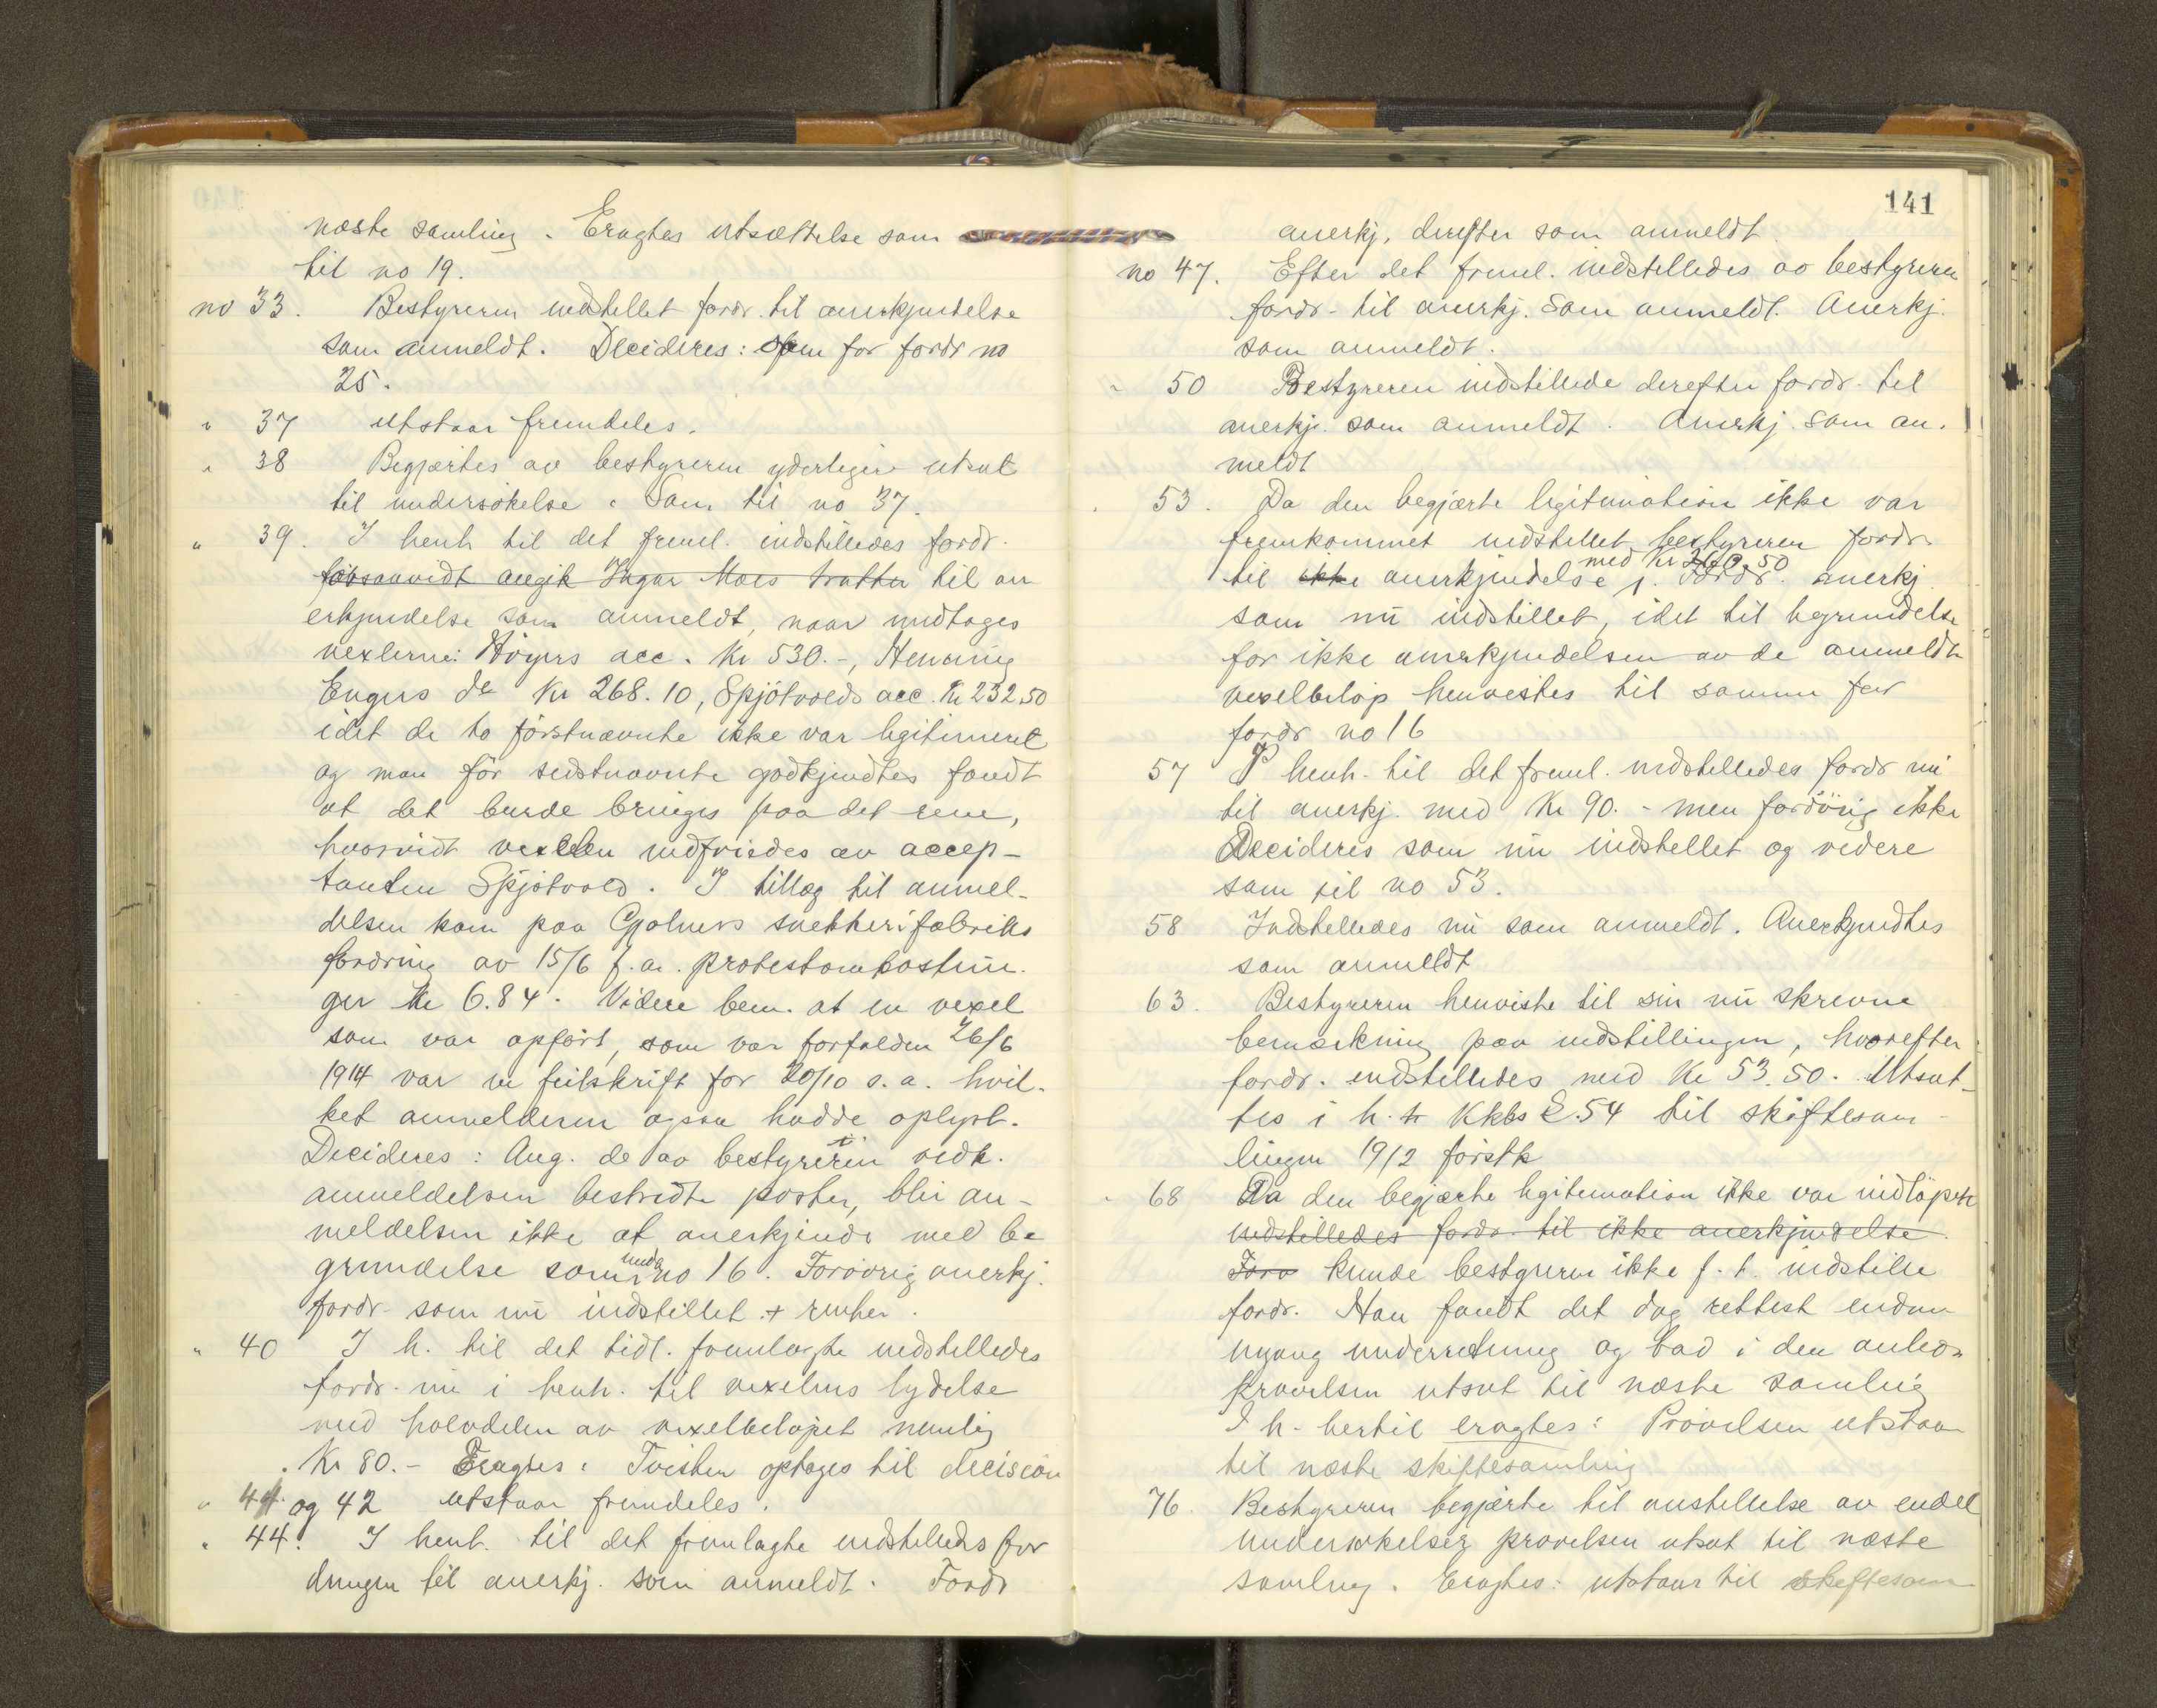 næste samling. Eragtes utsættelse som
til no 19.
no 33. Bestyreren indstillet fordr. til anerkjendelse
som anmeldt. Decideres: som for fordr no
25.
" 37 utstaar fremdeles.
" 38 Begjærtes av bestyreren yderligere utsat
til undersøkelse. Som til no 37.
" 39. I henh til det freml. indstilledes fordr.
forsaavidt angik Ingar Moes tratter til an
erkjendelse som anmeldt, naar undtages
vexlerne: Høyers acc. Kr 530.-, Henning
Engers do Kr 268.10, Spjötvolds acc. Kr 232.50
idet de to förstnævnte ikke var legitimeret
og man för sidstnævnte godkjendtes fandt
at det burde bringes paa det rene,
hvorvidt vexelen indfriedes av accep-
tanten Spjötvold. I tillæg til anmel-
delsen kom paa Gjølmers snekkerifabriks
fordring av 15/6 f.a. protestomkostnin-
ger Kr 6.84. Videre bem. at en vexel
som var opfört, som var forfalden 26/6
1914 var en feilskrift for 20/10 s.a. hvil-
ket anmelderen ogsaa hadde oplyst.
Decideres: Ang. de av bestyreren vedk.
anmeldelsen bestridte poster, blir an-
meldelsen ikke at anerkjende med be
grundelse som under no 16. Forøvrig anerkj.
fordr. som nu indstillet + renter.
" 40 I h. til det tidl. fremlagte indstilledes
fordr. nu i henh. til vexelens lydelse
med halvdelen av vexelbeløpet nemlig
Kr 80.- Eragtes: Tvisten optages til decision
" 41 og 42 utstaar fremdeles.
" 44. I henh. til det fremlagte indstilleds for
dringen til anerkj. som anmeldt. Fordr
141
anerkj. derefter som anmeldt.
no 47. Efter det freml. indstilledes av bestyreren
fordr. til anerkj. som anmeldt. Anerkj.
som anmeldt.
" 50 Bestyreren indstillede derefter fordr. til
anerkj. som anmeldt. Anerkj. som an-
meldt
" 53. Da den begjærte legitimation ikke var
fremkommet indstillet bestyreren fordr.
til ikke anerkjendelse med Kr 260.50. Fordr. anerkj
som nu indstillet, idet til begrundelse
for ikke anerkjendelsen av de anmeldte
vexelbeløp henvistes til samme for
fordr no 16
57 I henh. til det freml. indstilledes fordr nu
til anerkj. med Kr 90.- men forövrig ikke
Decideres som nu indstillet og videre
som til no 53.
58 Indstilledes nu som anmeldt. Anerkjendtes
som anmeldt
63. Bestyreren henviste til sin nu skrevne
bemerkning paa indstillingen, hvorefter
fordr. indstilledes med Kr 53.50. Utsat-
tes i h. t. Kkls § 54 til skiftesam-
lingen 19/2 förstk
" 68 Da den begjærte legitimation ikke var indløpet
indstilledes fordr. til ikke anerkjendelse.
Forø kunde bestyreren ikke f. t. indstille
fordr. Han fandt det dog rettest endnu
engang underretning og bad i den anled.
prøvelsen utsat til næste samling
I h. hertil eragtes: Prøvelsen utstaar
til næste skiftesamling
76. Bestyreren begjærte til anstillelse av endel
undersøkelser prøvelsen utsat til næste
samling. Eragtes: utstaar til skiftesam